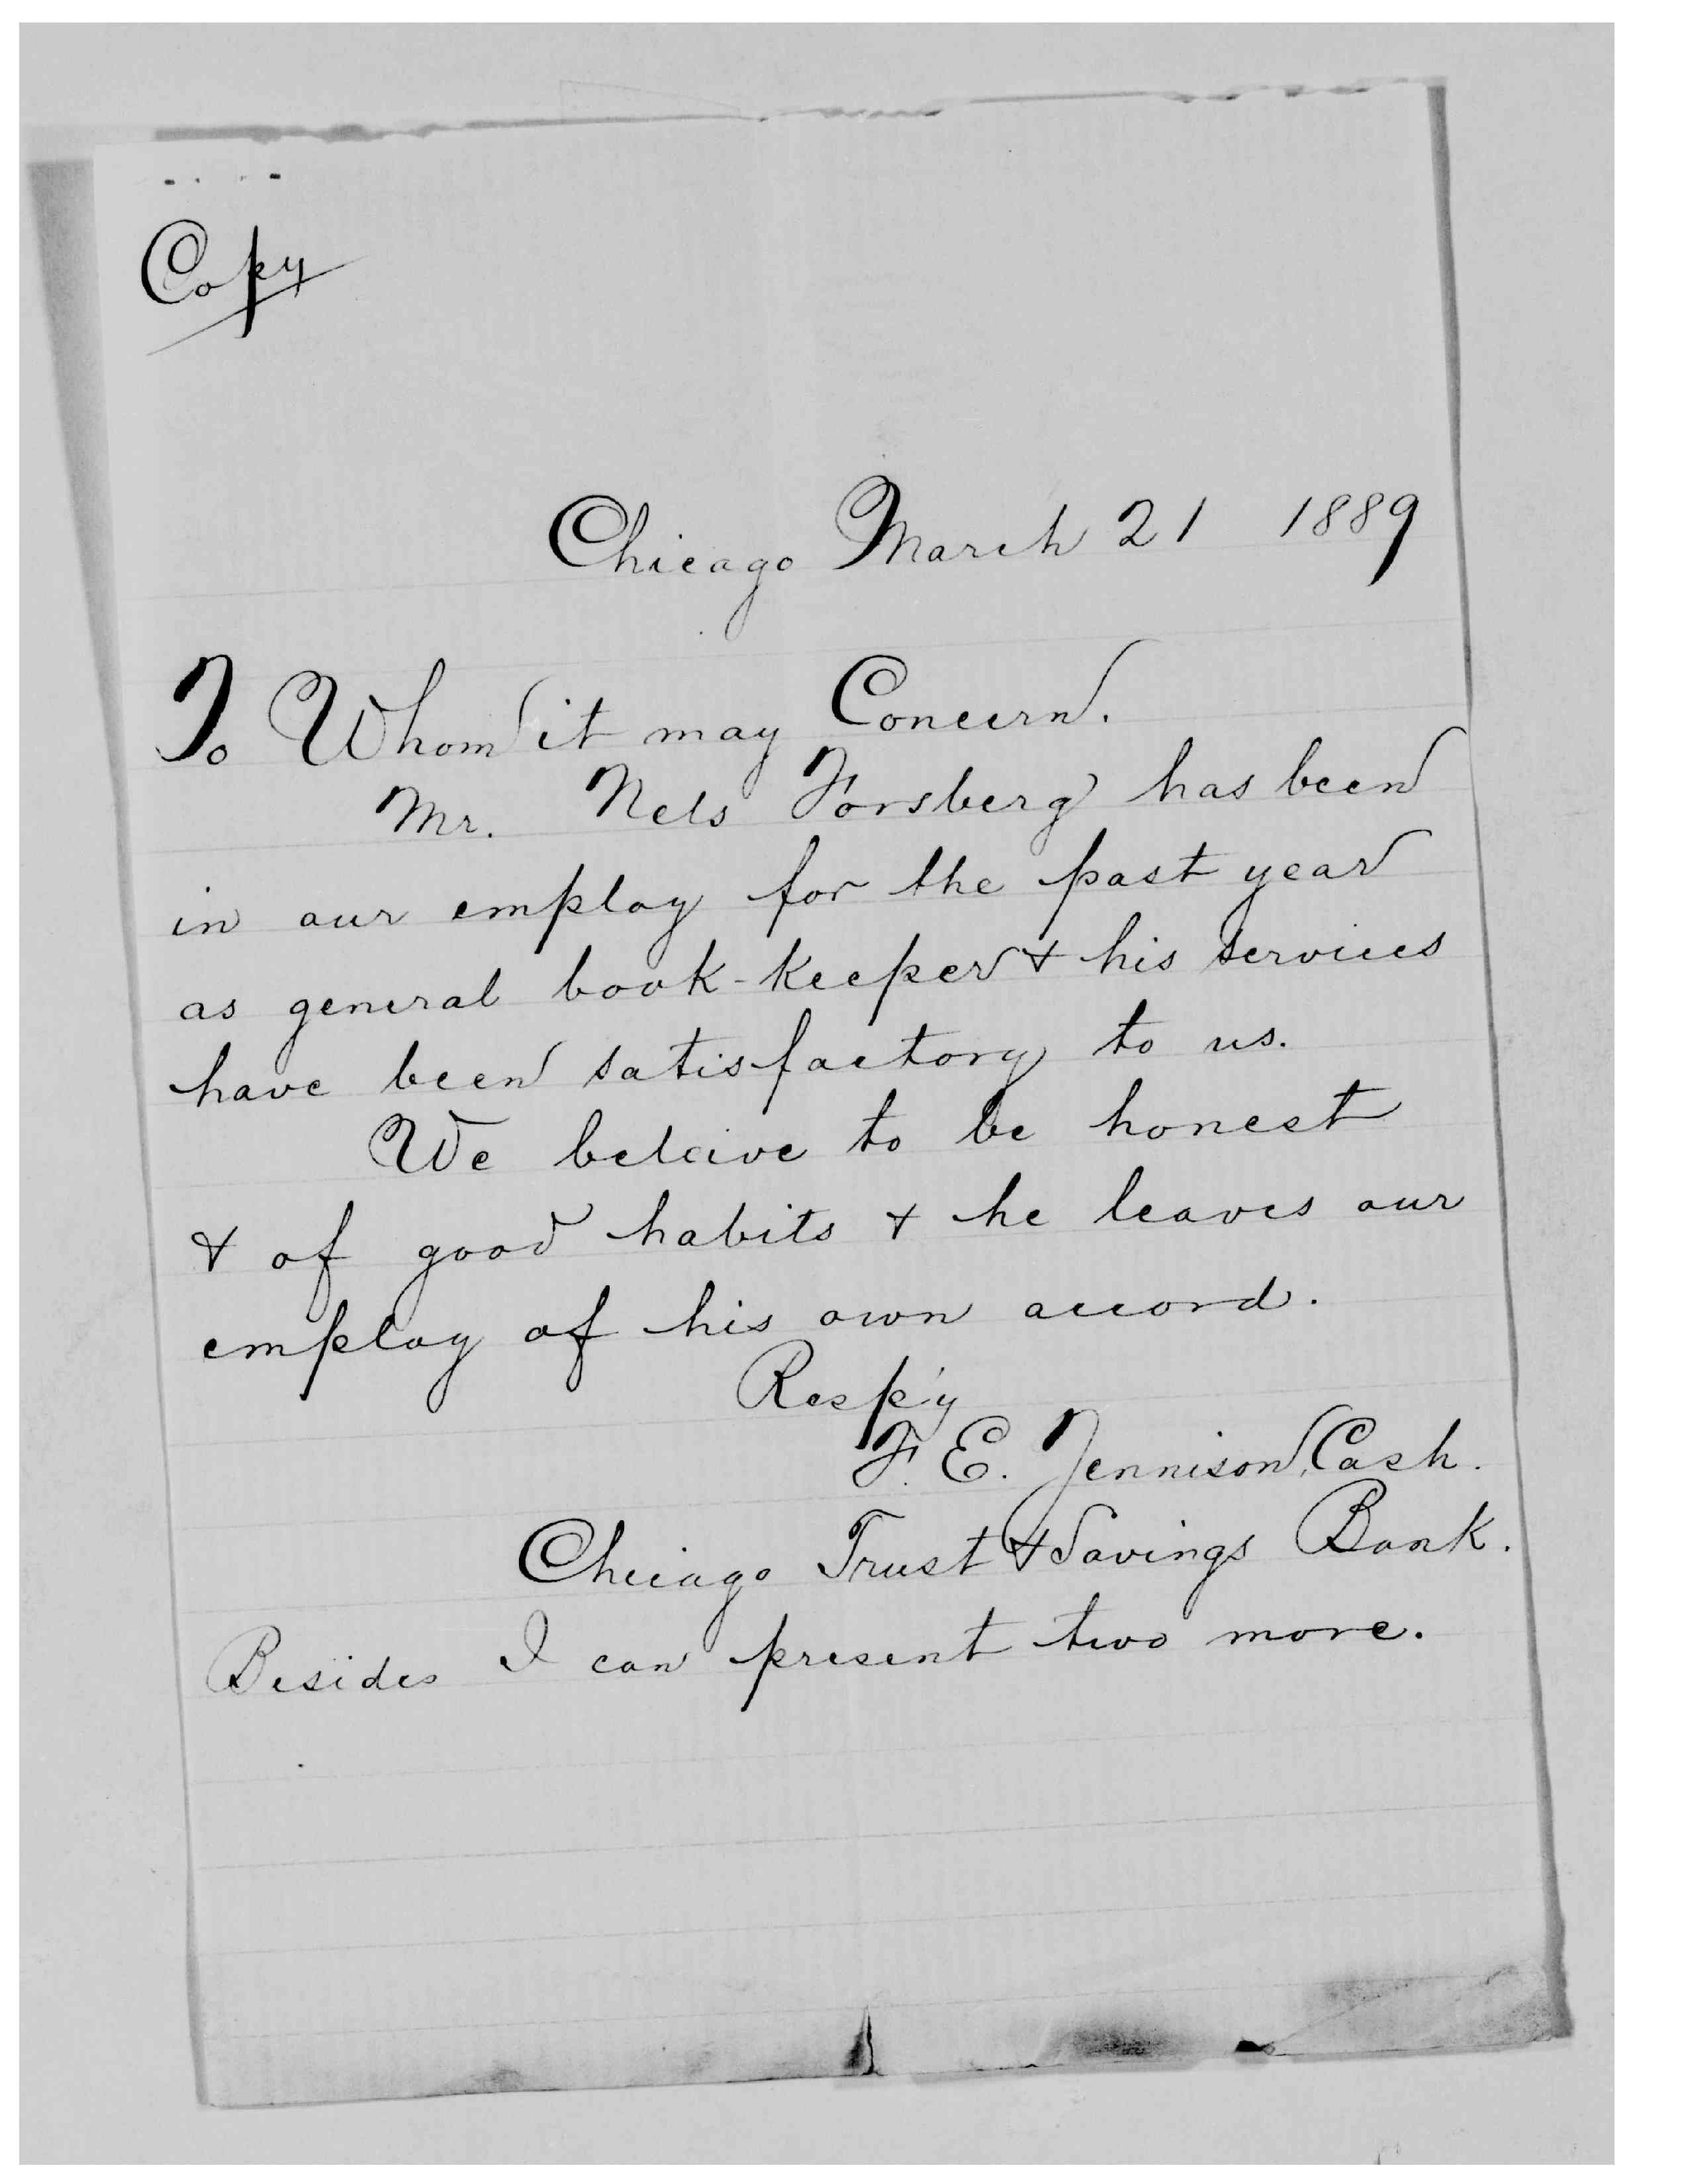 Copy
Chicago March 21 1889
To Whom it may Concern.
Mr. Nels Forsberg has been
in our employ for the past year
as general book-keeper & his services
have been satisfactory to us.
We beleive to be honest
& of good habits & he leaves our
employ of his own accord.
Resp'y
F. E. Jennison, Cash.
Chicago Trust & Savings Bank.
Besides I can present two more.